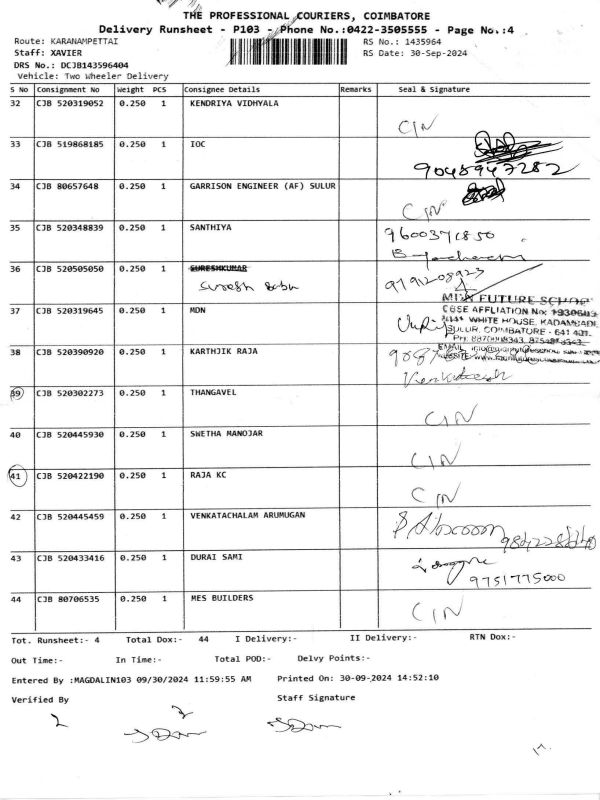 THE PROFESSIONAL COURIERS, COIMBATORE
Delivery Runsheet - P103 - Phone No.:0422-3505555 - Page No.:4
Route: KARANAMPETTAI RS No.: 1435964
Staff: XAVIER RS Date: 30-Sep-2024
DRS No.: DCJB143596404
Vehicle: Two Wheeler Delivery
S No Consignment No Weight PCS Consignee Details Remarks Seal & Signature
32 CJB 520319052 0.250 1 KENDRIYA VIDHYALA
CIN
33 CJB 519868185 0.250 1 IOC
9048947282
34 CJB 80657648 0.250 1 GARRISON ENGINEER (AF) SULUR
CIN
35 CJB 520348839 0.250 1 SANTHIYA 9600371850
36 CJB 520505050 0.250 1 SURESHKUMAR
Suresh Babu 9791208923
MDN FUTURE SCHOOL
37 CJB 520319645 0.250 1 MDN
CBSE AFFLIATION No: 1930603
WHITE HOUSE, KADAMBADI
SULUR, COIMBATORE - 641 401.
38 CJB 520390920 0.250 1 KARTHJIK RAJA
Venkatesh
39 CJB 520302273 0.250 1 THANGAVEL
CIN
40 CJB 520445930 0.250 1 SWETHA MANOJAR
CIN
41 CJB 520422190 0.250 1 RAJA KC
CIN
42 CJB 520445459 0.250 1 VENKATACHALAM ARUMUGAN
43 CJB 520433416 0.250 1 DURAI SAMI
9751775000
44 CJB 80706535 0.250 1 MES BUILDERS
CIN
Tot. Runsheet:- 4 Total Dox:- 44 I Delivery:- II Delivery:- RTN Dox:-
Out Time:- In Time:- Total POD:- Delvy Points:-
Entered By :MAGDALIN103 09/30/2024 11:59:55 AM Printed On: 30-09-2024 14:52:10
Verified By Staff Signature